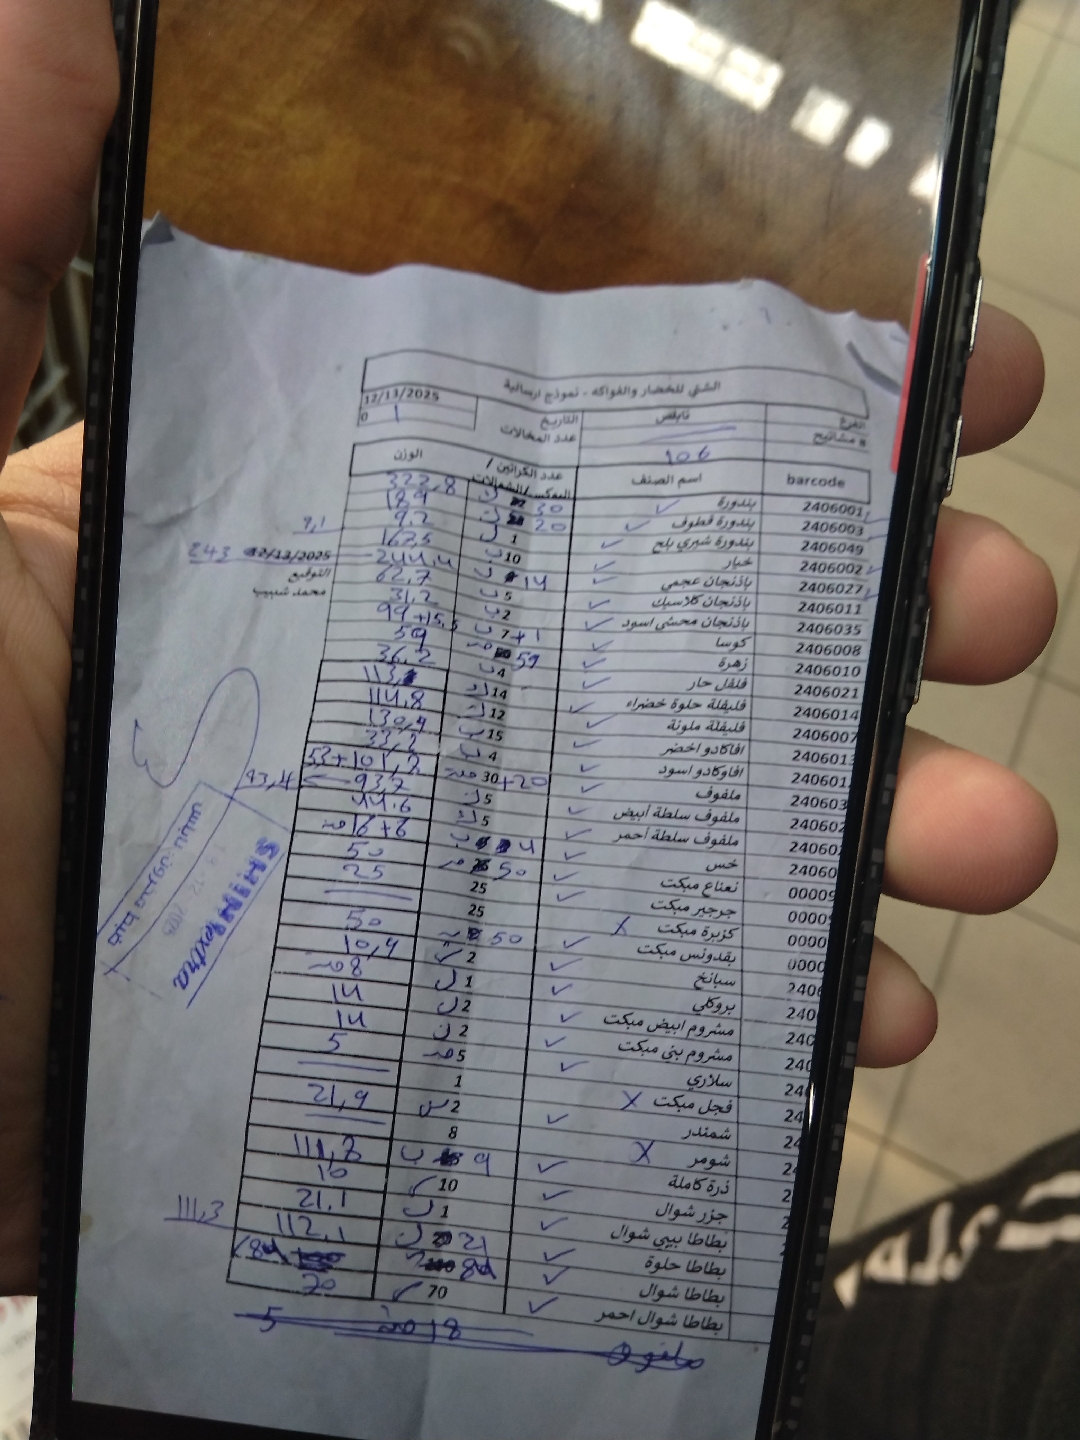 الشني للخضار والفواكه - نموذج ارسالية
الفرع نابلس التاريخ 12/13/2025
# مشاتيح 106 عدد المخالات 0 1
barcode اسم الصنف عدد الكراتين / البوكس / الشوالات الوزن
2406001 بندورة 30 322,8
2406003 بندورة قطوف 20 189
2406049 بندورة شيري بلح 1 9.2 9,1
2406002 خيار 10 162,5
2406027 باذنجان عجمي 14 244,4 243
12/13/2025
2406011 باذنجان كلاسيك 5 62,7
التوقيع
2406035 باذنجان محشي اسود 2 31,2
محمد شبيب
2406008 كوسا 7+1 99+15,5
2406010 زهرة 59 59
2406021 فلفل حار 4 36,2
2406014 فليفلة حلوة خضراء 14 113,
2406007 فليفلة ملونة 12 114,8
240601 افاكادو اخضر 15 130,9
240601 افاوكادو اسود 4 33,2
240603 ملفوف 30+20 53+101,2
240602 ملفوف سلطة أبيض 5 93,7 93,4
24060 ملفوف سلطة أحمر 5 44.6
24060 خس 4 16+6
0000 نعناع مبكت 50 50
0000 جرجير مبكت 25 25
0000 كزبرة مبكت X 25
0000 بقدونس مبكت 50 50
240 سبانخ 2 10,9
240 بروكلي 1 8
240 مشروم ابيض مبكت 2 14
240 مشروم بني مبكت 2 14
24 سلاري 5 5
24 فجل مبكت X 1
24 شمندر 2 21,9
2 شومر X 8
2 ذرة كاملة 9 111,8
جزر شوال 10 10
بطاطا بيبي شوال 1 21,1
بطاطا حلوة 21 112,1 111,3
بطاطا شوال 84 84
بطاطا شوال احمر 70 70
ملفوف 18 5